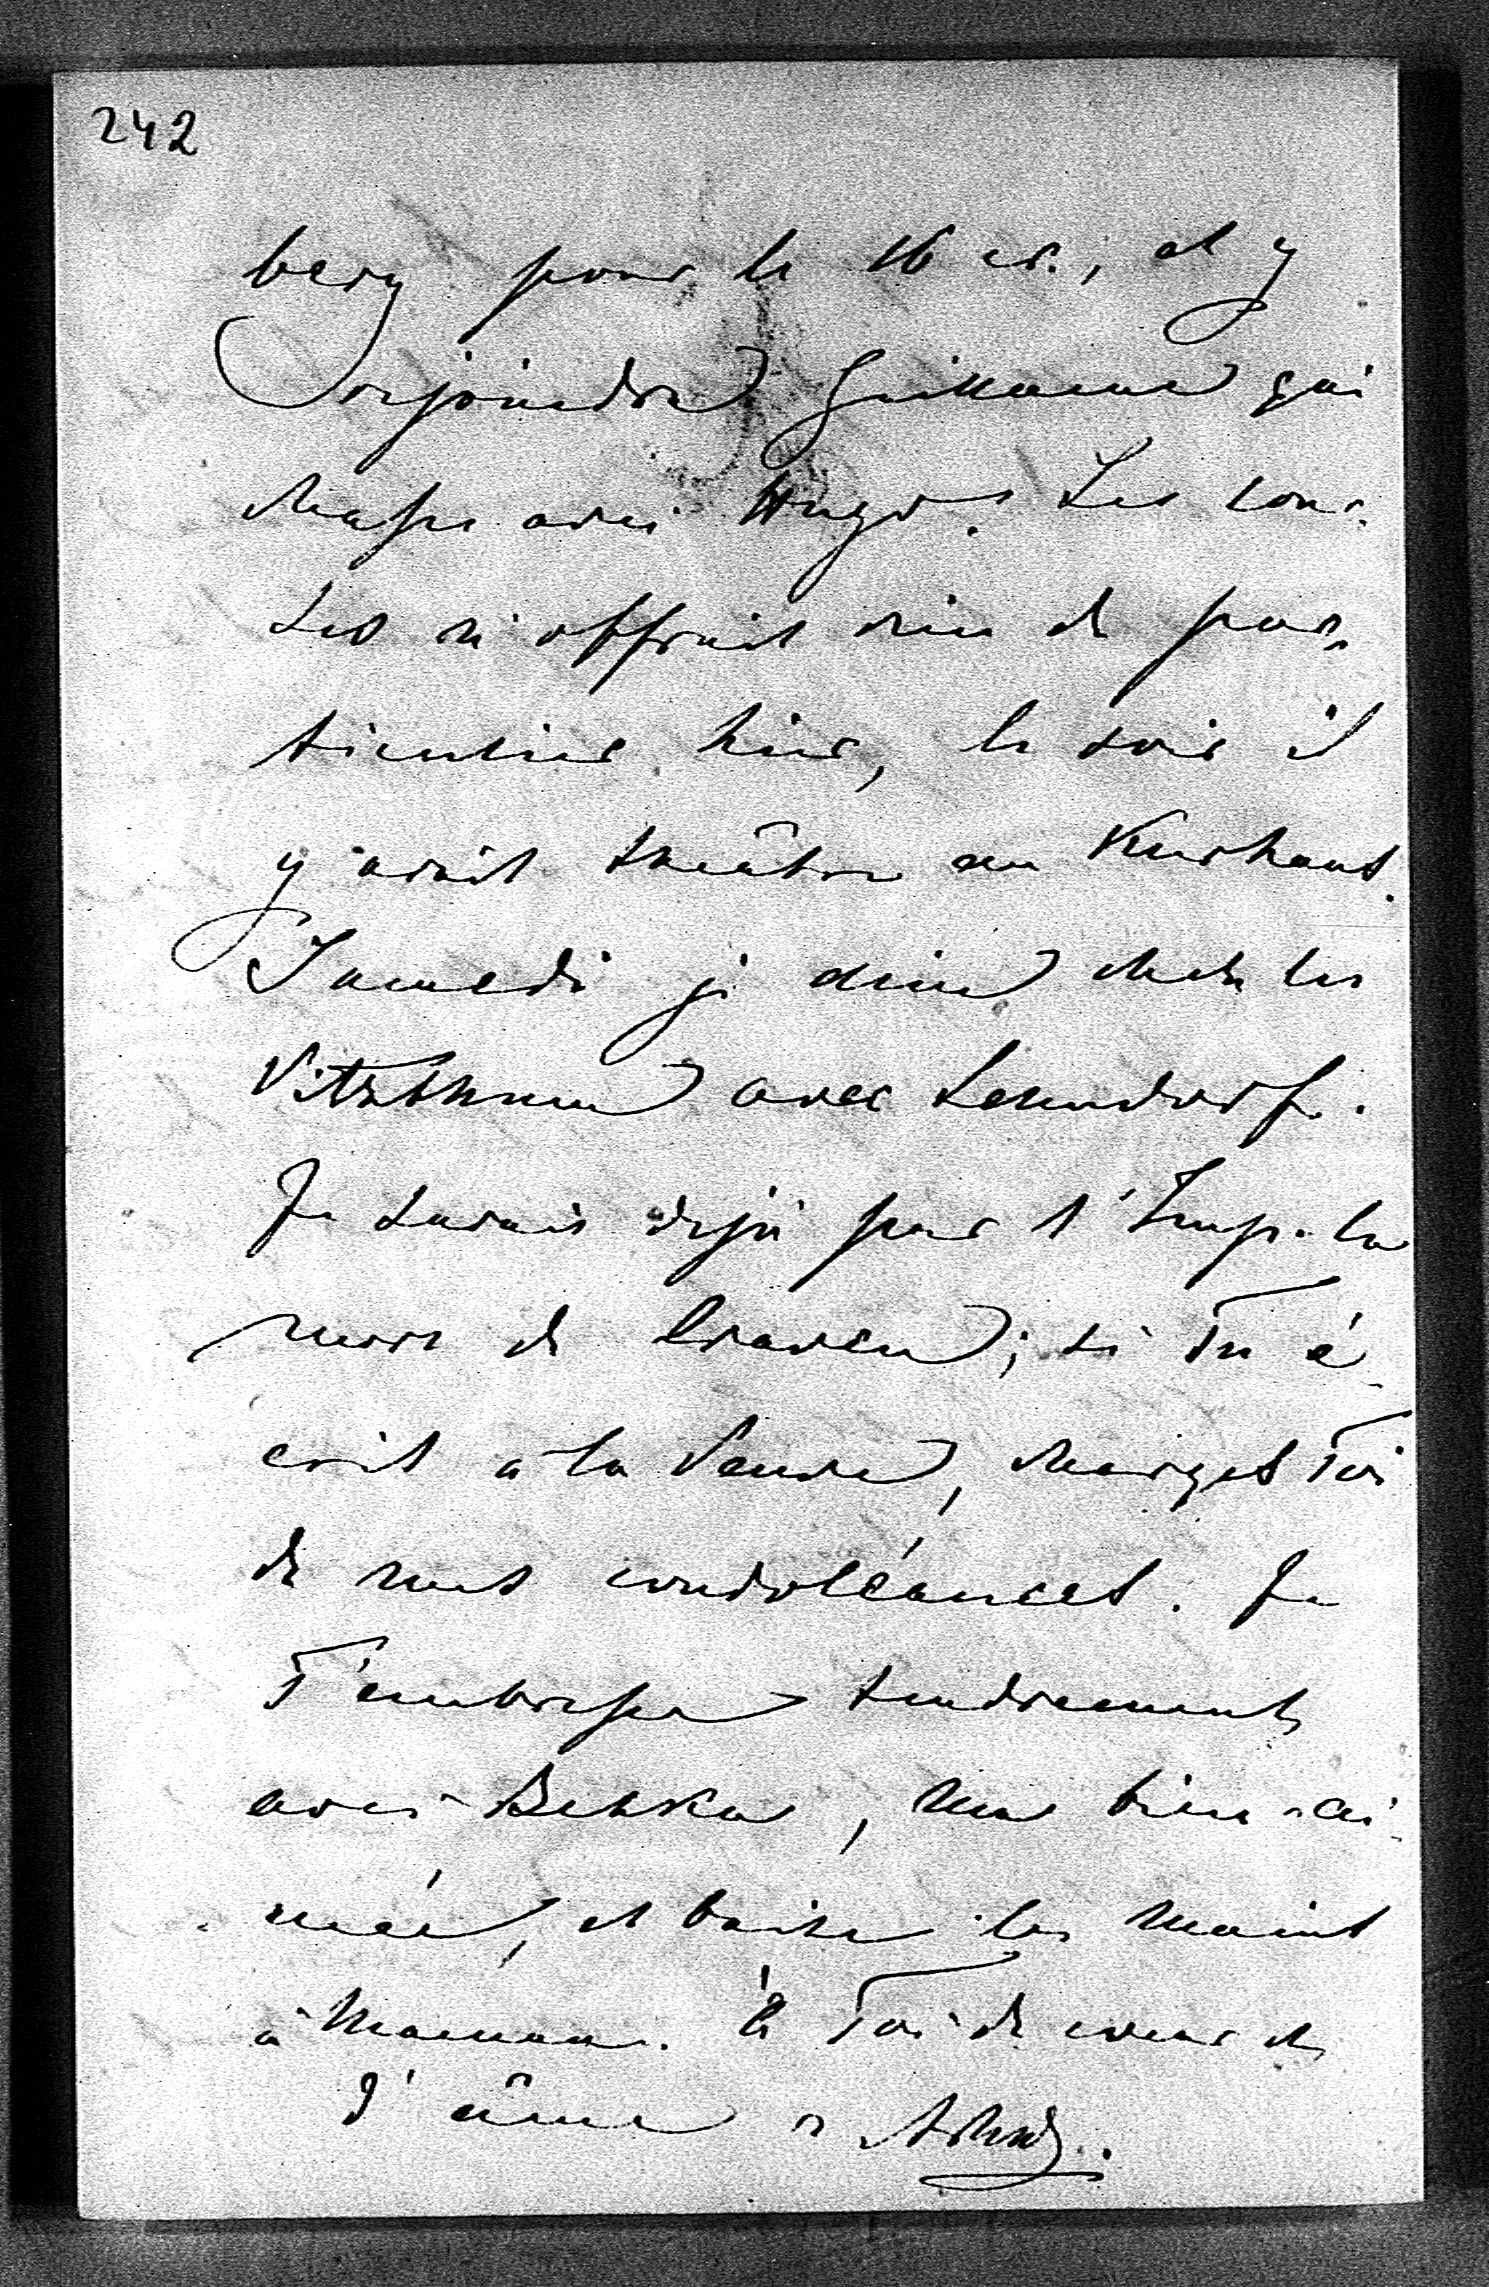 242
berg pour le 16 cr., et y
rejoindra Guillaume qui
chasse avec Hugo. Les cour-
ses n'offrait rien de par-
ticulier hier, le soir il
y avait théâtre au Kurhaus.
Samedi je dine chez les
Vitzthum avec Lehndorf.
Je savais déjà par l'Imp. la
mort de Craven; si Tu é-
crit à la Veuve, charges Toi
de mes condoléances. Je
T'embrasse tendrement
avec Betka, ma bien-ai-
mée, et baise les mains
à Maman. à Toi de coeur et
d'âme